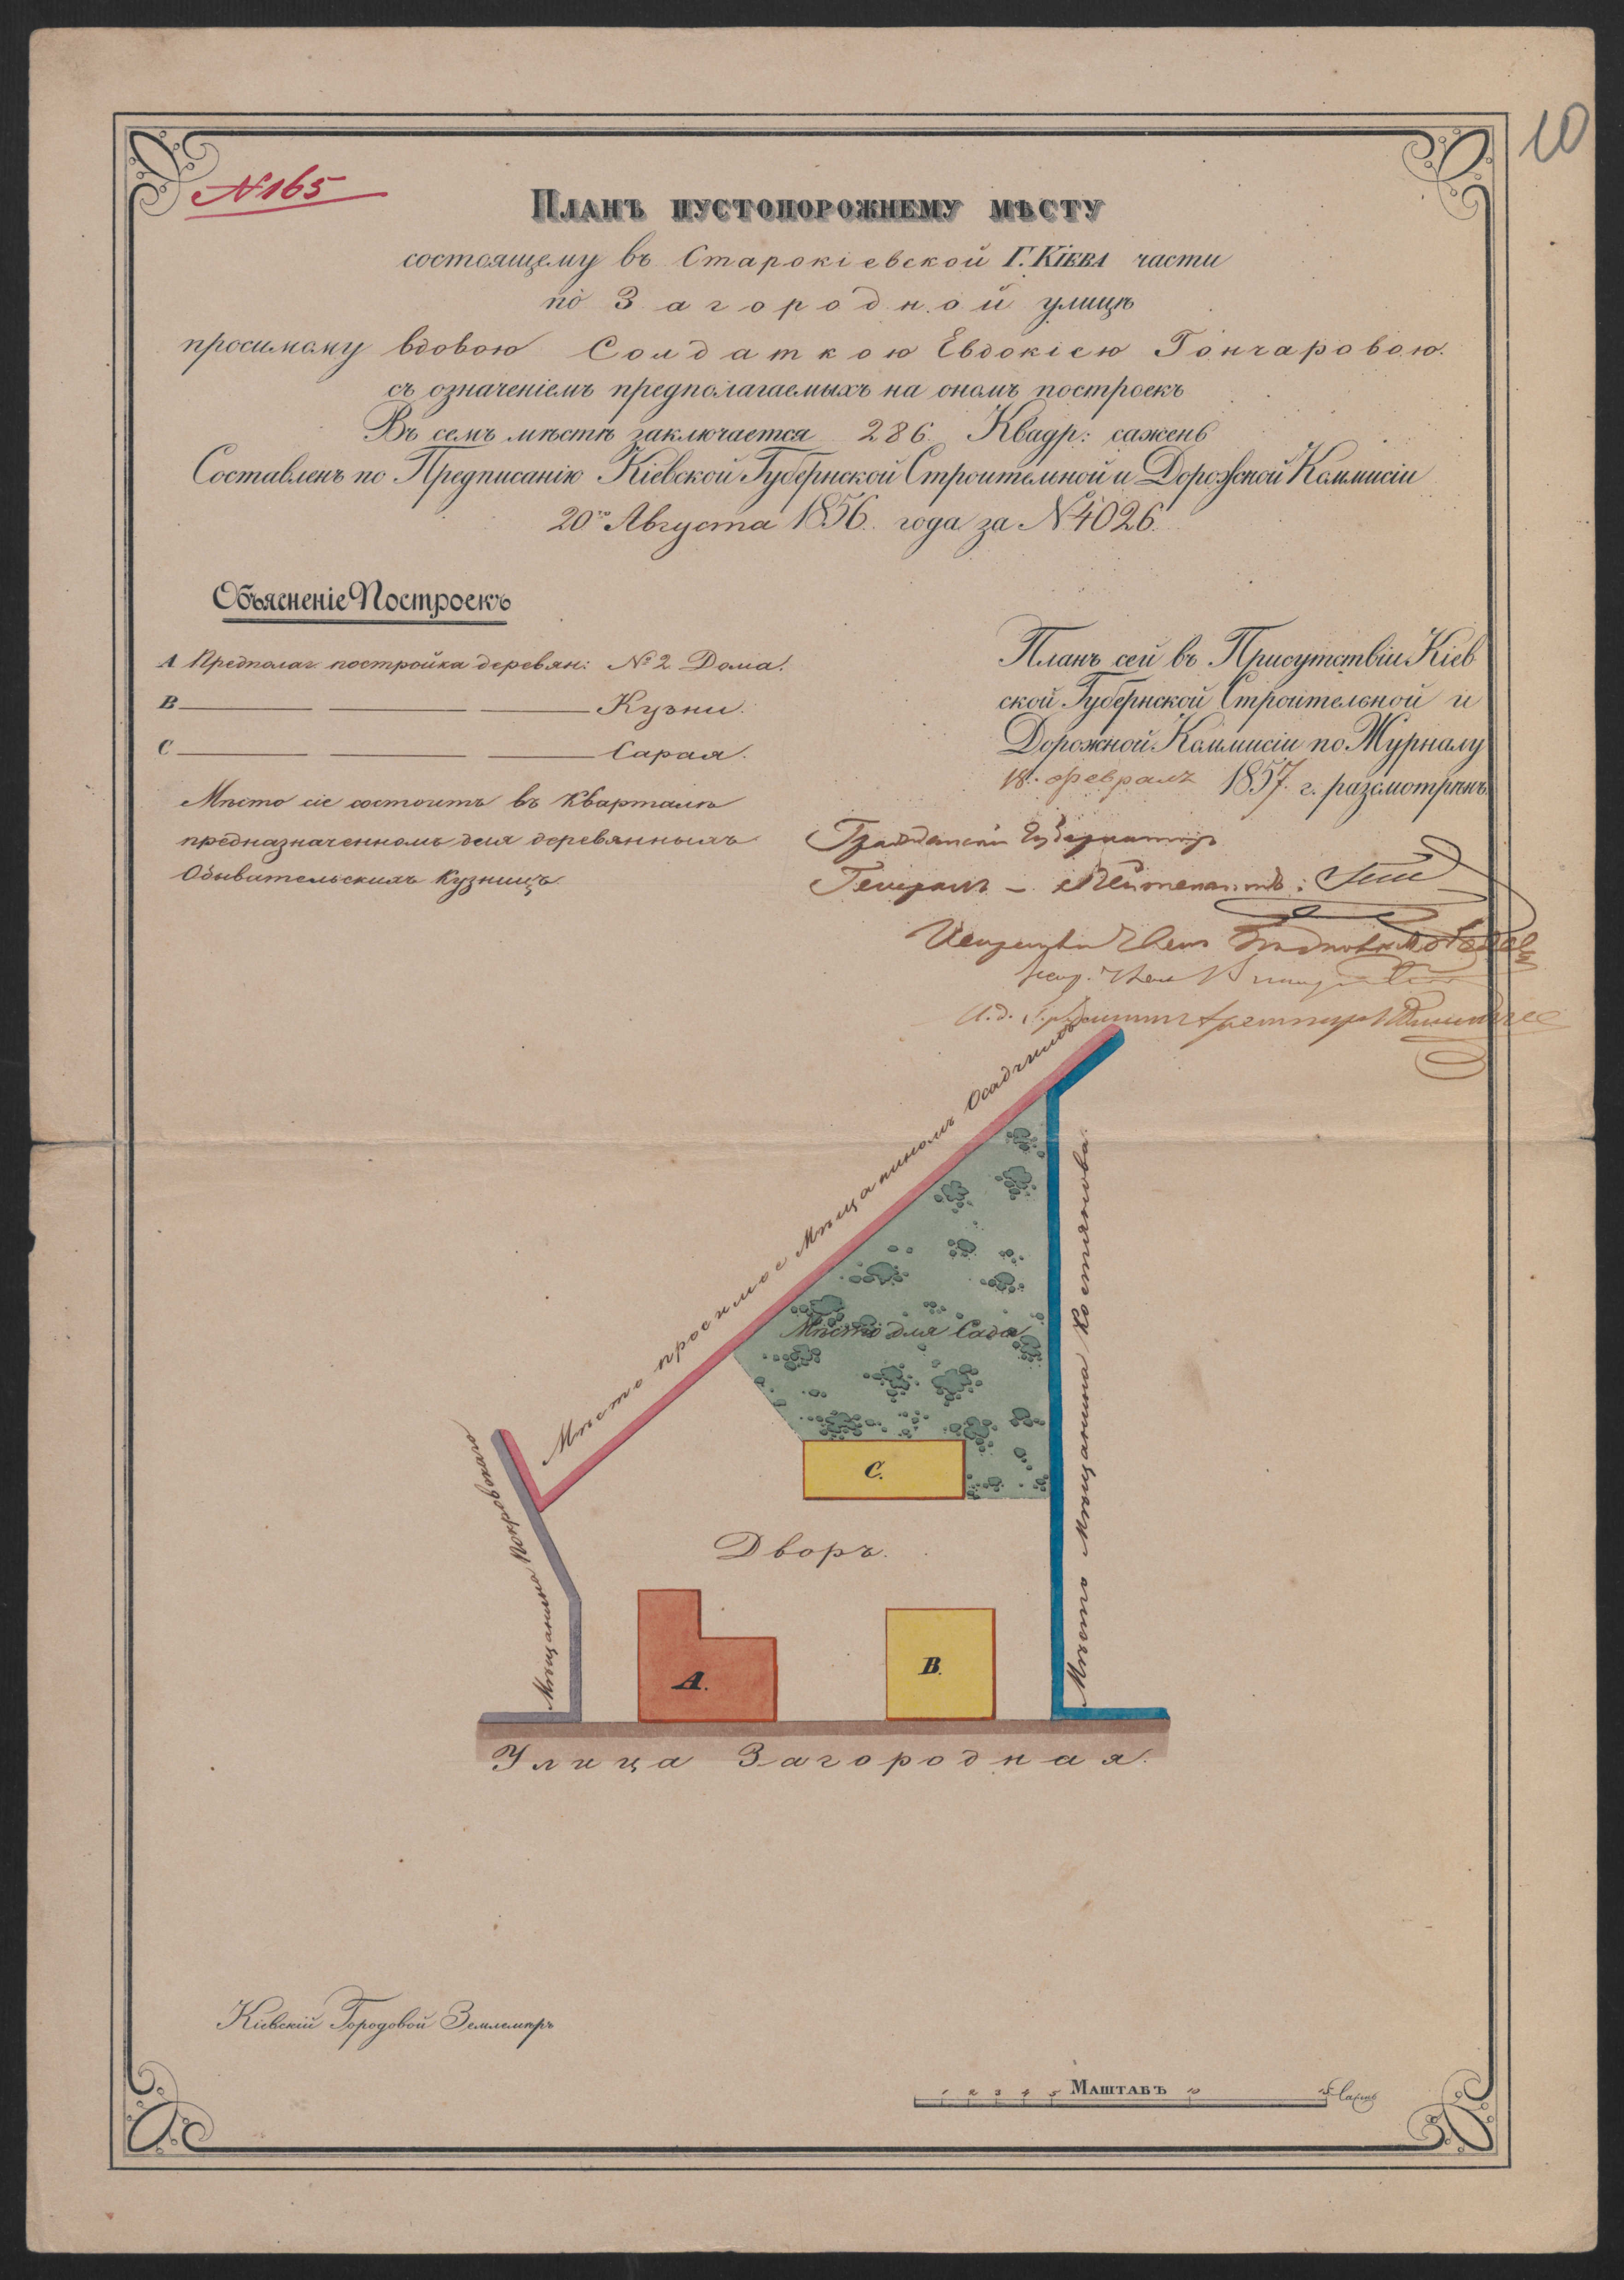 10
№ 165
Планъ пустопорожнему мѣсту
состоящему въ Старокіевской Г. Кіева части
по Загородной улицѣ
просимому вдовою Солдаткою Евдокіею Гончаровою.
съ означеніемъ предполагаемыхъ на ономъ построекъ
Въ семъ мѣстѣ заключается 286 Квадр: сажень
Составленъ по Предписанію Кіевской Губернской Строительной и Дорожной Коммисіи
20го Августа 1856 года за № 4026.
Объясненіе Построекъ
А Предполаг. постройка деревян: № 2 Дома.
В ——— ——— ——— Кузни.
С ——— ——— ——— Сарая.
Мѣсто сіе состоитъ въ Кварталѣ
предназначенномъ для деревянныхъ
Обывательскихъ Кузницъ
Планъ сей въ Присутствіи Кіев
ской Губернской Строительной и
Дорожной Коммисіи по Журналу
18. февраля 1857 г. разсмотрѣнъ
Гражданскій Губернаторъ
Генералъ-Лейтенантъ:
Мѣсто просимое Мѣщаниномъ Осадчимъ
Мѣсто мѣщанина Костянова
Мѣсто для Сада
Мѣщанина Покровскаго
С.
Дворъ.
А.
В.
Улица Загородная.
Кіевскій Городовой Землемѣръ
1 2 3 4 5 Масштабъ 10 15 Сажень